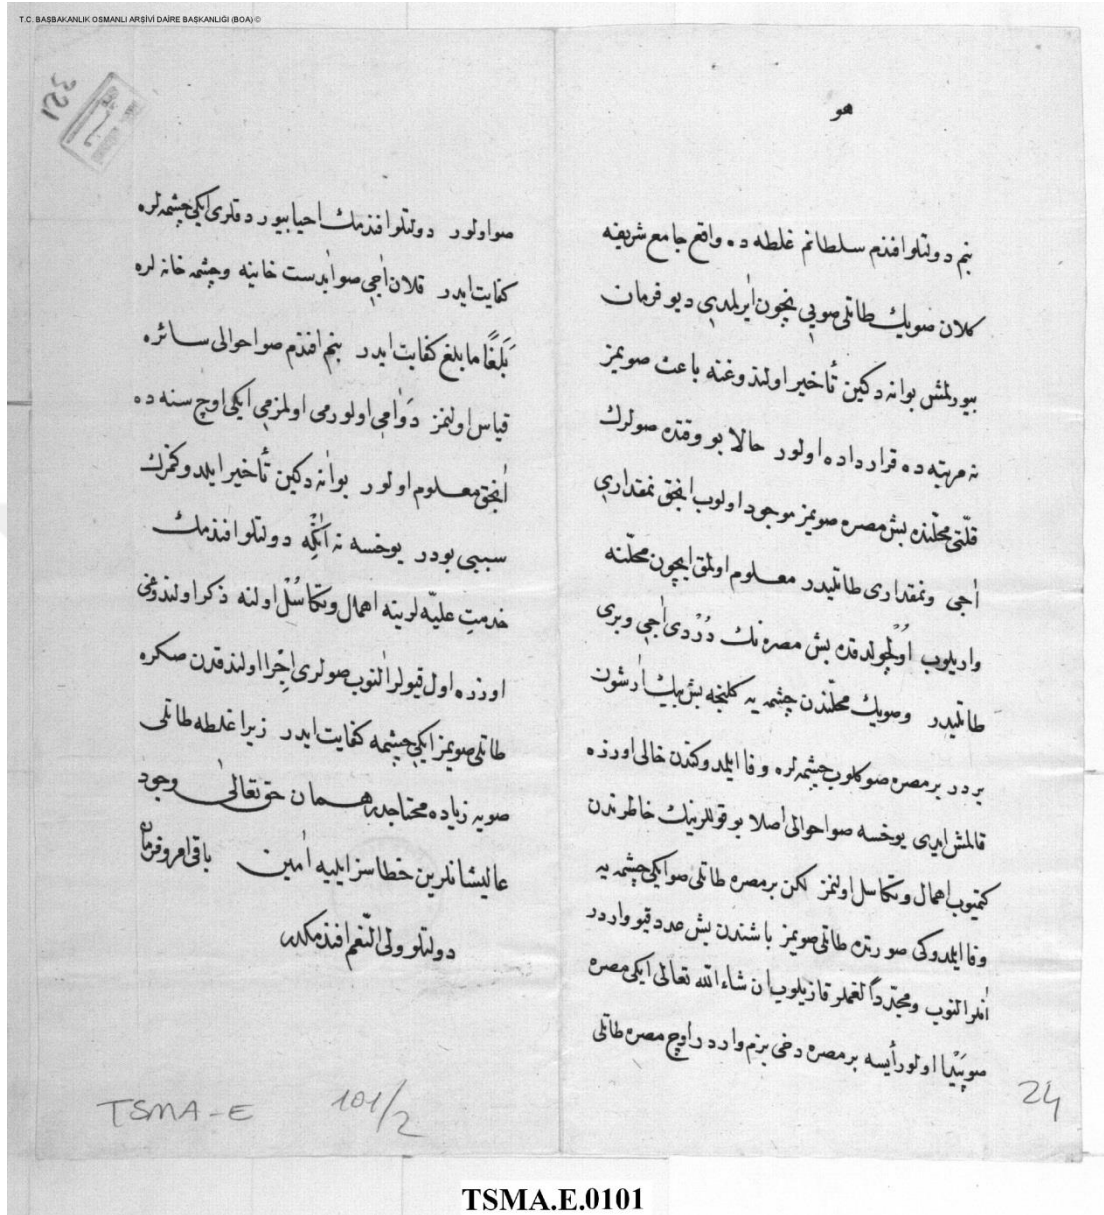 T.C. BAŞBAKANLIK OSMANLI ARŞİVİ DAİRE BAŞKANLIĞI (BOA) ©
321
هو
بنم دولتلو افندم سلطانم غلطه ده واقع جامع شریفنه
كلان صویك طاتلی صویی نیچون ایرلدی دیو فرمان
بیورلمش بو انه دكین تأخیر اولندوغنه باعث صویمز
نه مرتبه ده قرارداده اولور حالا بو وقتده صولرك
قلتی محلنده بش مصره صویمز موجود اولوب انجق نمقداری
اجی ونمقداری طاتلیدر معلوم اولمق ایچون محلنه
واریلوب اولچولدقده بش مصره نك دردی اجی وبری
طاتلیدر وصویك محلندن چشمه یه كلنجه بش بیك ارشون
یردر بر مصره صو كلوب چشمه لره وفا ایلدوكندن خالی اوزره
قالمش ایدی یوخسه صو احوالی اصلا بو قوللرینك خاطرندن
كتمیوب اهمال وتكاسل اولنمز لكن بر مصره طاتلی صو ایكی چشمه یه
وفا ایلدوكی صورتده طاتلی صویمز باشندن بش عدد قیو واردر
انلر النوب ومجددا لغملر قازیلوب ان شاء الله تعالی ایكی مصره
صو پیدا اولور ایسه بر مصره دخی بزم واردر اوچ مصره طاتلی
صو اولور دولتلو افندمك احیا بیوردقلری ایكی چشمه لره
كفایت ایدر قلان اجی صو ابدست خانیه وچشمه خانه لره
بلغا ما بلغ كفایت ایدر بنم افندم صو احوالی سائره
قیاس اولنمز دوامی اولورمی اولمزمی ایكی اوچ سنه ده
انجق معلوم اولور بو انه دكین تأخیر ایلدوكمزك
سببی بودر یوخسه نه اكله دولتلو افندمك
خدمت علیه لرینه اهمال وتكاسل اولنه ذكر اولندوغی
اوزره اول قیولر النوب صولری اجرا اولندقدن صكره
طاتلی صویمز ایكی چشمه كفایت ایدر زیرا غلطه طاتلی
صویه زیاده محتاجدر همان حق تعالی وجود
عالیشانلرین خطاسز ایلیه امین باقی امر وفرمان
دولتلو ولی النعم افندمكدر
TSMA-E 101/2
24
TSMA.E.0101